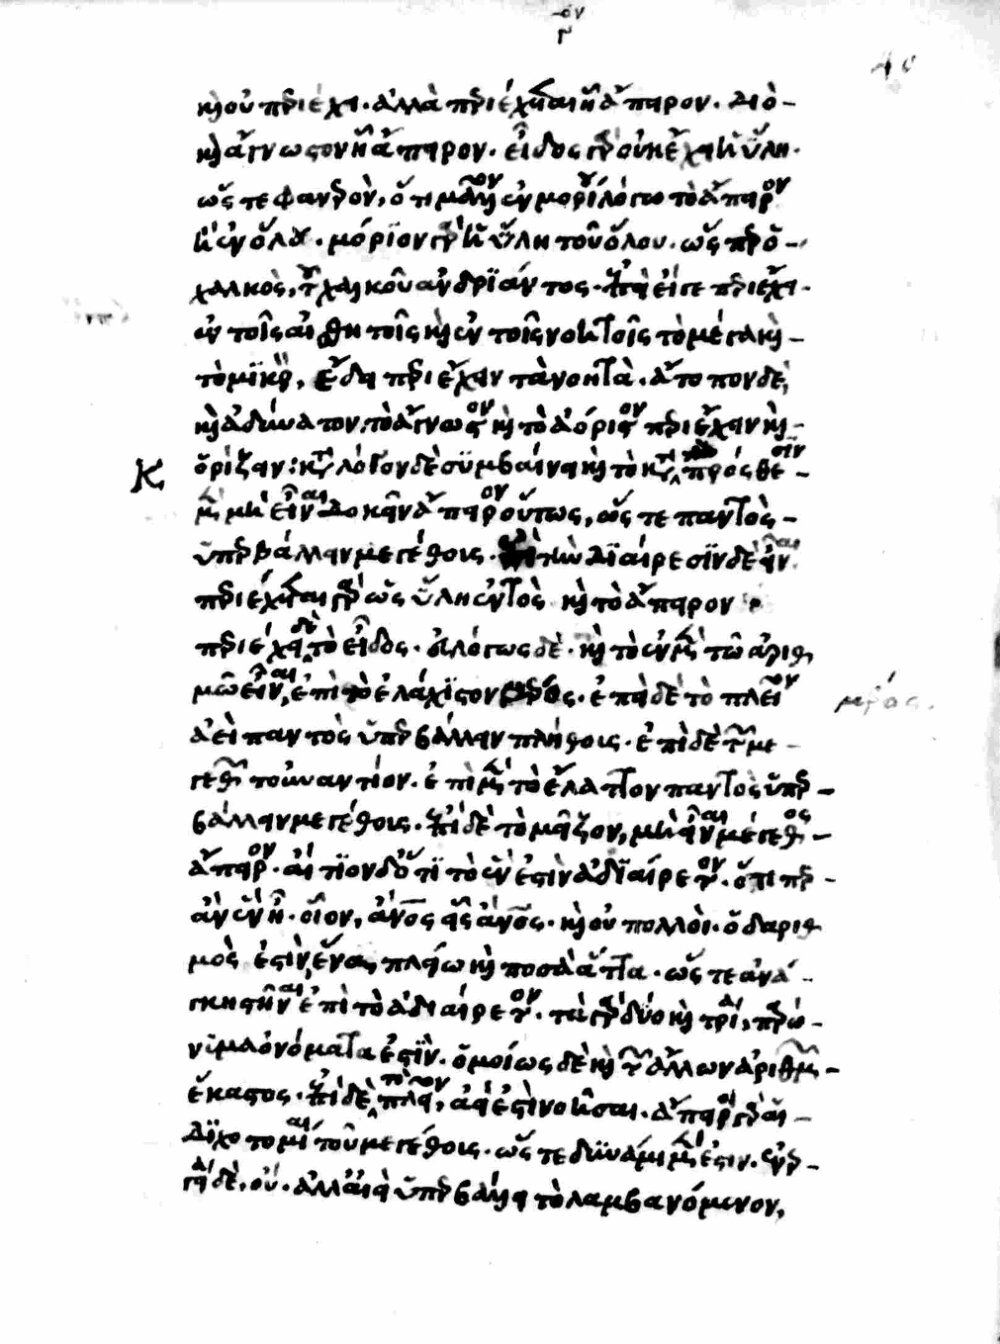 ον
Γ
40
καὶ οὐ περιέχει. ἀλλὰ περιέχεται ἧ ἄπειρον. διὸ
καὶ ἄγνωστον ἧ ἄπειρον. εἶδος γὰρ οὐκ ἔχει ἡ ὕλη.
ὥστε φανερὸν, ὅτι μᾶλλον ἐν μορίου λόγω τὸ ἄπειρον
ἢ ἐν ὅλου. μόριον γὰρ ἡ ὕλη τοῦ ὅλου. ὥσπερ ὁ
χαλκὸς, τοῦ χαλκοῦ ἀνδριάντος. ἐπεὶ εἴγε περιέχει
ἐν τοῖς αἰσθητοῖς καὶ ἐν τοῖς νοητοῖς τὸ μέγα καὶ
τὸ μικρὸν, ἔδει περιέχειν τὰ νοητὰ. ἄτοπον δὲ,
καὶ ἀδύνατον, τὸ ἄγνωστον καὶ τὸ ἀόριστον περιέχειν καὶ
ὁρίζειν: κατὰ λόγον δὲ συμβαίνει καὶ τὸ κατὰ πρόσθεσιν
Κ
μὲν μὴ εἶναι δοκεῖν ἄπειρον οὕτως, ὥστε παντὸς
ὑπερβάλλειν μεγέθους. ἐπὶ τὴν διαίρεσιν δὲ εἶναι.
περιέχεται γὰρ ὡς ὕλη ἐντὸς καὶ τὸ ἄπειρον
περιέχει δὲ τὸ εἶδος. εὐλόγως δὲ. καὶ τὸ ἐν μὲν τῶ ἀριθ
μῶ εἶναι, ἐπὶ τὸ ἐλάχιστον πέρας. ἐπεὶ δὲ τὸ πλεῖον
ἀεὶ παντὸς ὑπερβάλλειν πλήθους. ἐπὶ δὲ τῶν με
γεθῶν τοὐναντίον. ἐπὶ μὲν τὸ ἔλαττον παντὸς ὑπερ
βάλλειν μεγέθους. ἐπὶ δὲ τὸ μεῖζον, μὴ εἶναι μέγεθος
ἄπειρον. αἴτιον δ' ὅτι τὸ ἕν ἐστιν ἀδιαίρετον. ὅτι περ
ἂν ἓν ἦ. οἷον, ἄνθρωπος εἷς ἄνθρωπος. καὶ οὐ πολλοὶ. ὁ δ' ἀριθ
μὸς ἐστὶν, ἕνα πλείω καὶ πόσ' ἄττα. ὥστε ἀνά
γκη στῆναι ἐπὶ τὸ ἀδιαίρετον. τὰ γὰρ δύο καὶ τρία, παρώ
νυμα ὀνόματα ἐστὶν. ὁμοίως δὲ καὶ τῶν ἄλλων ἀριθμῶν
ἕκαστος. ἐπὶ δὲ τὸ πλεῖον, ἀεὶ ἐστὶ νοῆσαι. ἄπειροι γὰρ αἱ
διχοτομίαι τοῦ μεγέθους. ὥστε δυνάμει μέν ἐστιν. ἐνερ
γείᾳ δὲ, οὔ. ἀλλ' ἀεὶ ὑπερβάλλει τὸ λαμβανόμενον,